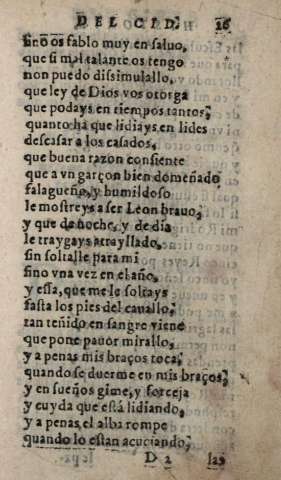 DEL CID. 26
sino os fablo muy en saluo,
que si mal talante os tengo
non puedo dissimulallo,
que ley de Dios vos otorga
que podays en tiempos tantos,
quanto ha que lidiays en lides
descasar a los casados,
que buena razon consiente
que a vn garçon bien domeñado
falagueño, y humildoso
le mostreys a ser Leon brauo,
y que de noche, y de dia
le traygays atrayllado,
sin soltalle para mi
sino vna vez en el año,
y essa, que me le soltays
fasta los pies del cauallo,
tan teñido en sangre viene
que pone pauor mirallo,
y a penas mis braços toca,
quando se duerme en mis braços,
y en sueños gime, y forceja
y cuyda que está lidiando,
y a penas el alba rompe
quando lo estan acuciando,
D 2 las